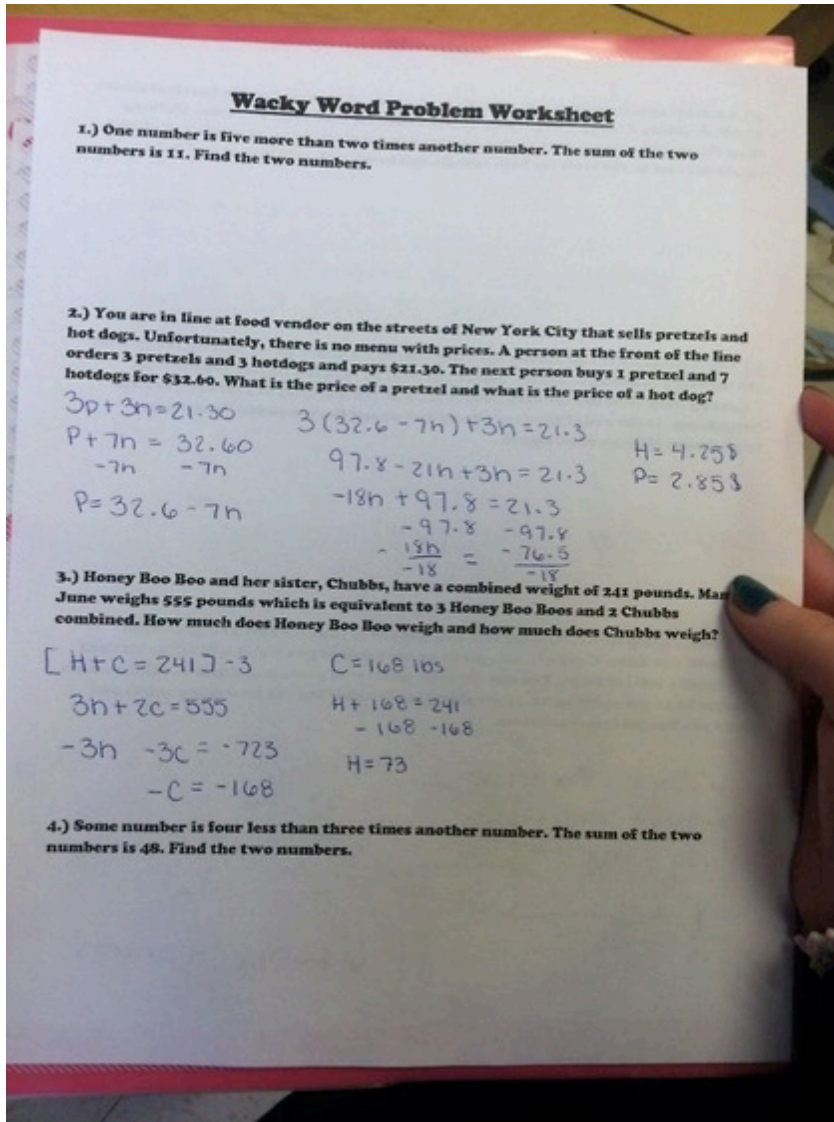 Wacky Word Problem Worksheet
1.) One number is five more than two times another number. The sum of the two
numbers is 11. Find the two numbers.
2.) You are in line at food vendor on the streets of New York City that sells pretzels and
hot dogs. Unfortunately, there is no menu with prices. A person at the front of the line
orders 3 pretzels and 3 hotdogs and pays $21.30. The next person buys 1 pretzel and 7
hotdogs for $32.60. What is the price of a pretzel and what is the price of a hot dog?
3p + 3h = 21.30
P + 7h = 32.60
-7h -7h
P = 32.6 - 7h
3(32.6 - 7h) + 3h = 21.3
97.8 - 21h + 3h = 21.3
-18h + 97.8 = 21.3
-97.8 -97.8
- 18h = - 76.5
-18 -18
H = 4.25$
P = 2.85$
3.) Honey Boo Boo and her sister, Chubbs, have a combined weight of 241 pounds. Mam
June weighs 555 pounds which is equivalent to 3 Honey Boo Boos and 2 Chubbs
combined. How much does Honey Boo Boo weigh and how much does Chubbs weigh?
[H + C = 241] -3
3h + 2c = 555
-3h -3c = -723
-C = -168
C = 168 lbs
H + 168 = 241
- 168 -168
H = 73
4.) Some number is four less than three times another number. The sum of the two
numbers is 48. Find the two numbers.